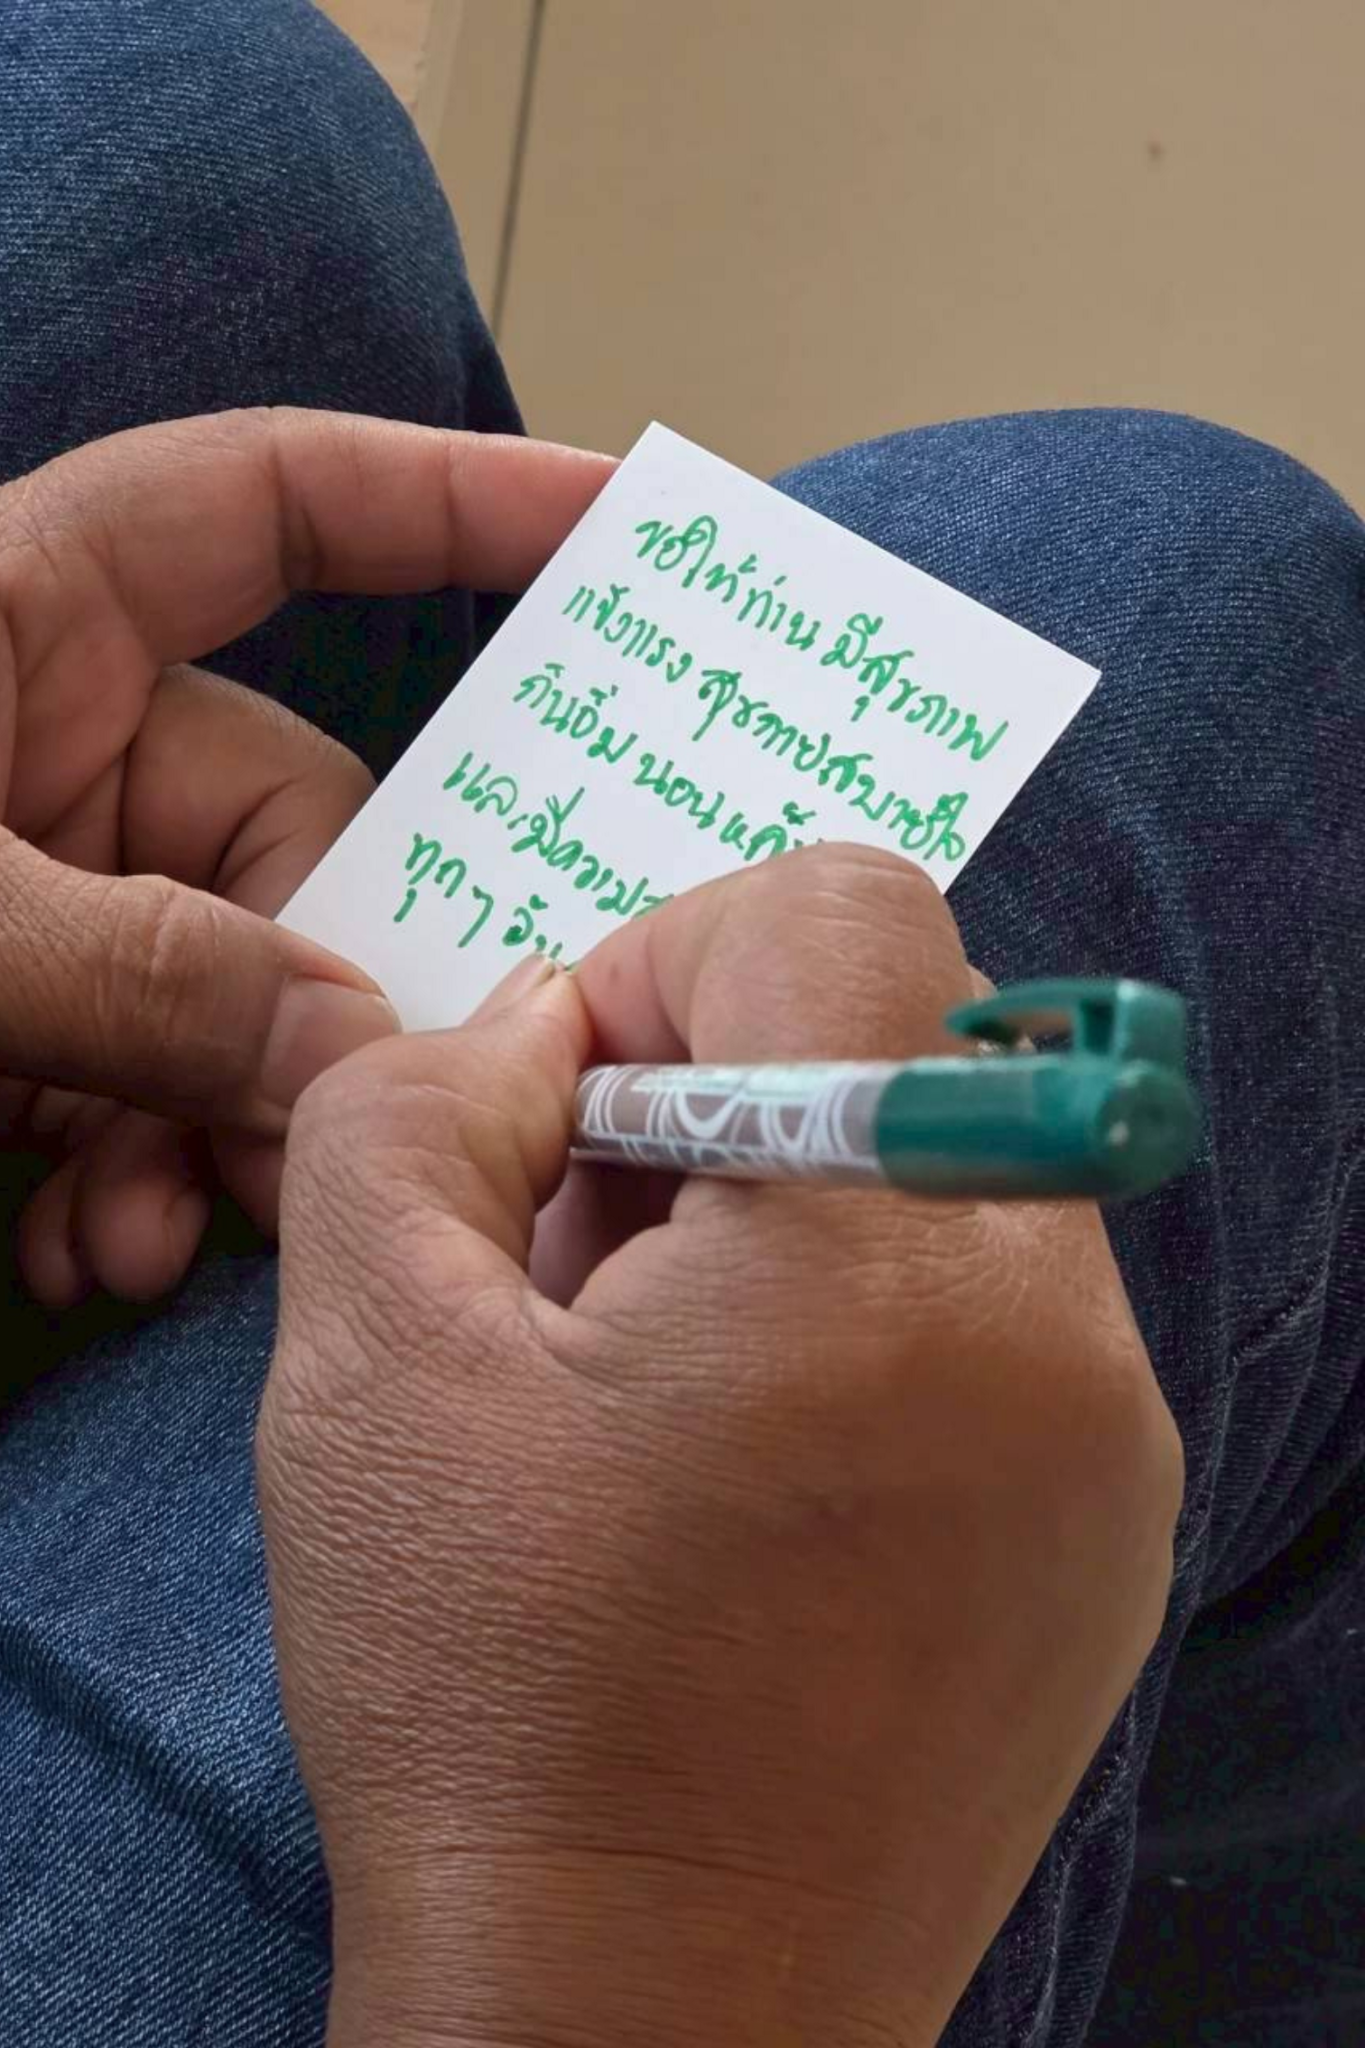 ขอให้ท่าน มีสุขภาพ
แข็งแรง สุขกายสบายใจ
กินอิ่ม นอน
และมีความ
ทุก ๆ วัน